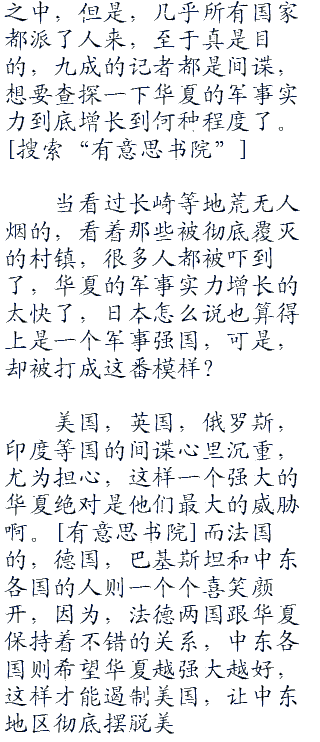 之中，但是，几乎所有国家
都派了人来，至于真是目
的，九成的记者都是间谍，
想要查探一下华夏的军事实
力到底增长到何种程度了。
[搜索“有意思书院”]
当看过长崎等地荒无人
烟的，看着那些被彻底覆灭
的村镇，很多人都被吓到
了，华夏的军事实力增长的
太快了，日本怎么说也算得
上是一个军事强国，可是，
却被打成这番模样？
美国，英国，俄罗斯，
印度等国的间谍心里沉重，
尤为担心，这样一个强大的
华夏绝对是他们最大的威胁
啊。[有意思书院]而法国
的，德国，巴基斯坦和中东
各国的人则一个个喜笑颜
开，因为，法德两国跟华夏
保持着不错的关系，中东各
国则希望华夏越强大越好，
这样才能遏制美国，让中东
地区彻底摆脱美